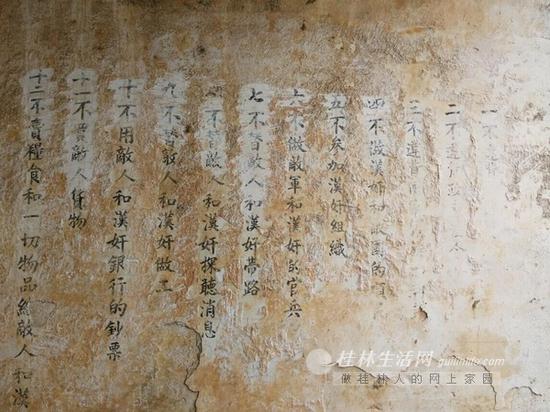 一不違
二不違
三不違
四不做漢奸和敵國的順
五不參加漢奸組織
六不做敵軍和漢奸的官兵
七不替敵人和漢奸帶路
八不替敵人和漢奸探聽消息
九不替敵人和漢奸做工
十不用敵人和漢奸銀行的鈔票
十一不買敵人貨物
十二不賣糧食和一切物品給敵人和漢
桂林生活网
做桂林人的网上家园